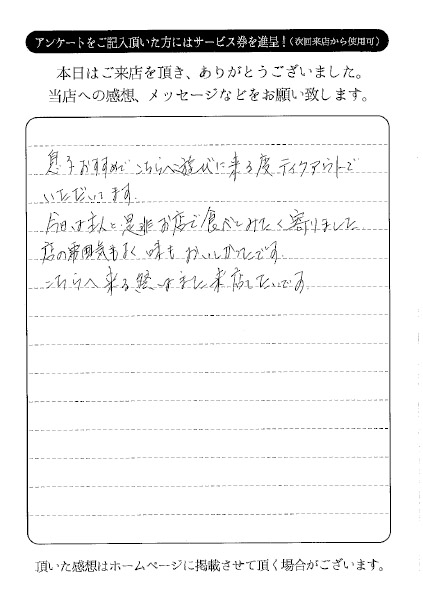 アンケートをご記入頂いた方にはサービス券を進呈！（次回来店から使用可）
本日はご来店を頂き、ありがとうございました。
当店への感想、メッセージなどをお願い致します。
息子おすすめでこちらへ遊びに来る度テイクアウトで
いただいてます。
今日は主人と是非お店で食べてみたく寄りました
店の雰囲気もよく味もおいしかったです。
こちらへ来る際はまた来店したいです
頂いた感想はホームページに掲載させて頂く場合がございます。